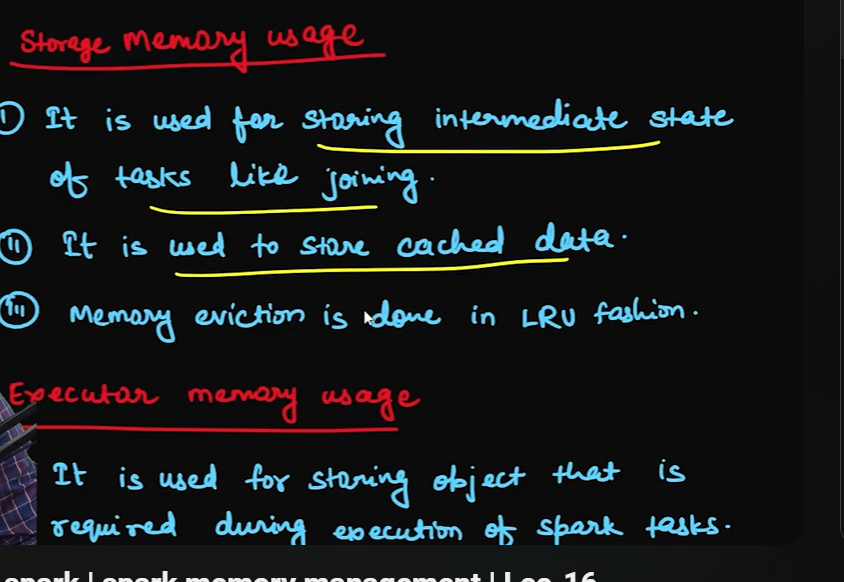 Storage Memory usage
i) It is used for storing intermediate state
of tasks like joining.
ii) It is used to store cached data.
iii) Memory eviction is done in LRU fashion.
Executor memory usage
It is used for storing object that is
required during execution of spark tasks.
spark | spark memory management | Lec-16